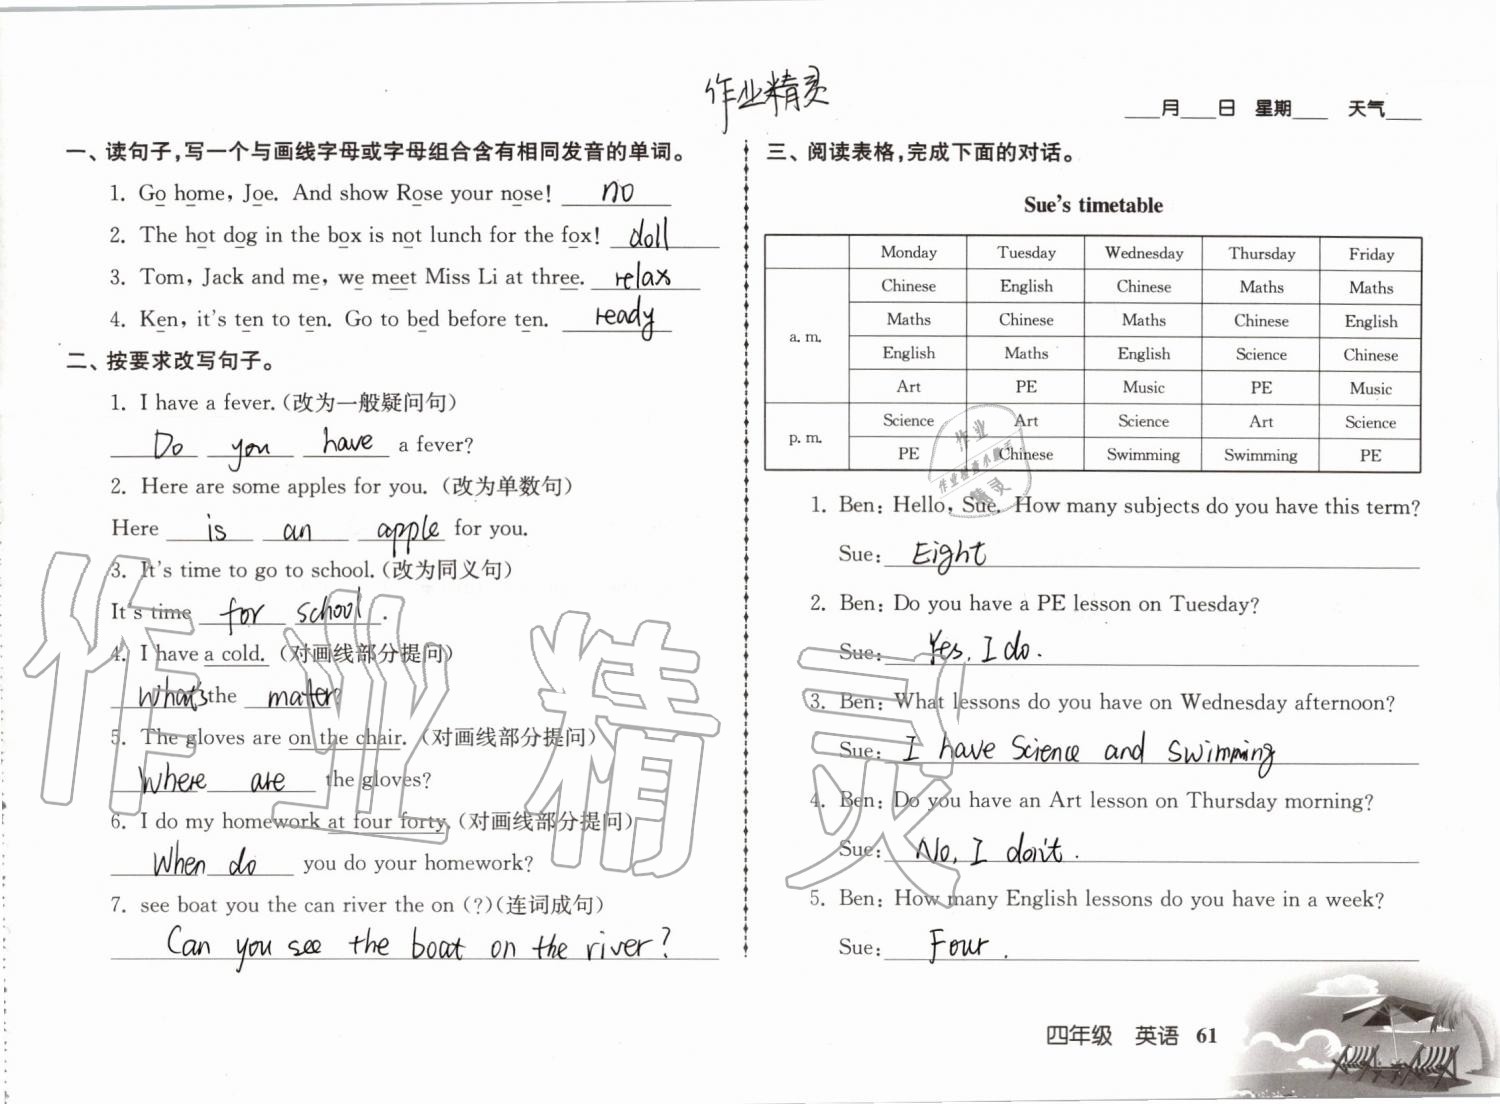 作业精灵
___月___日 星期___ 天气___
一、读句子,写一个与画线字母或字母组合含有相同发音的单词。
1. Go home, Joe. And show Rose your nose! no
2. The hot dog in the box is not lunch for the fox! doll
3. Tom, Jack and me, we meet Miss Li at three. relax
4. Ken, it's ten to ten. Go to bed before ten. ready
二、按要求改写句子。
1. I have a fever.(改为一般疑问句)
Do you have a fever?
2. Here are some apples for you.(改为单数句)
Here is an apple for you.
3. It's time to go to school.(改为同义句)
It's time for school.
4. I have a cold.(对画线部分提问)
What's the matter
5. The gloves are on the chair.(对画线部分提问)
Where are the gloves?
6. I do my homework at four forty.(对画线部分提问)
When do you do your homework?
7. see boat you the can river the on (?)(连词成句)
Can you see the boat on the river?
三、阅读表格,完成下面的对话。
Sue's timetable
Monday Tuesday Wednesday Thursday Friday
a. m. Chinese English Chinese Maths Maths
Maths Chinese Maths Chinese English
English Maths English Science Chinese
Art PE Music PE Music
p. m. Science Art Science Art Science
PE Chinese Swimming Swimming PE
1. Ben: Hello, Sue. How many subjects do you have this term?
Sue: Eight
2. Ben: Do you have a PE lesson on Tuesday?
Sue: Yes, I do.
3. Ben: What lessons do you have on Wednesday afternoon?
Sue: I have Science and Swimming
4. Ben: Do you have an Art lesson on Thursday morning?
Sue: No, I don't.
5. Ben: How many English lessons do you have in a week?
Sue: Four.
四年级 英语 61
作业精灵
作业
精灵